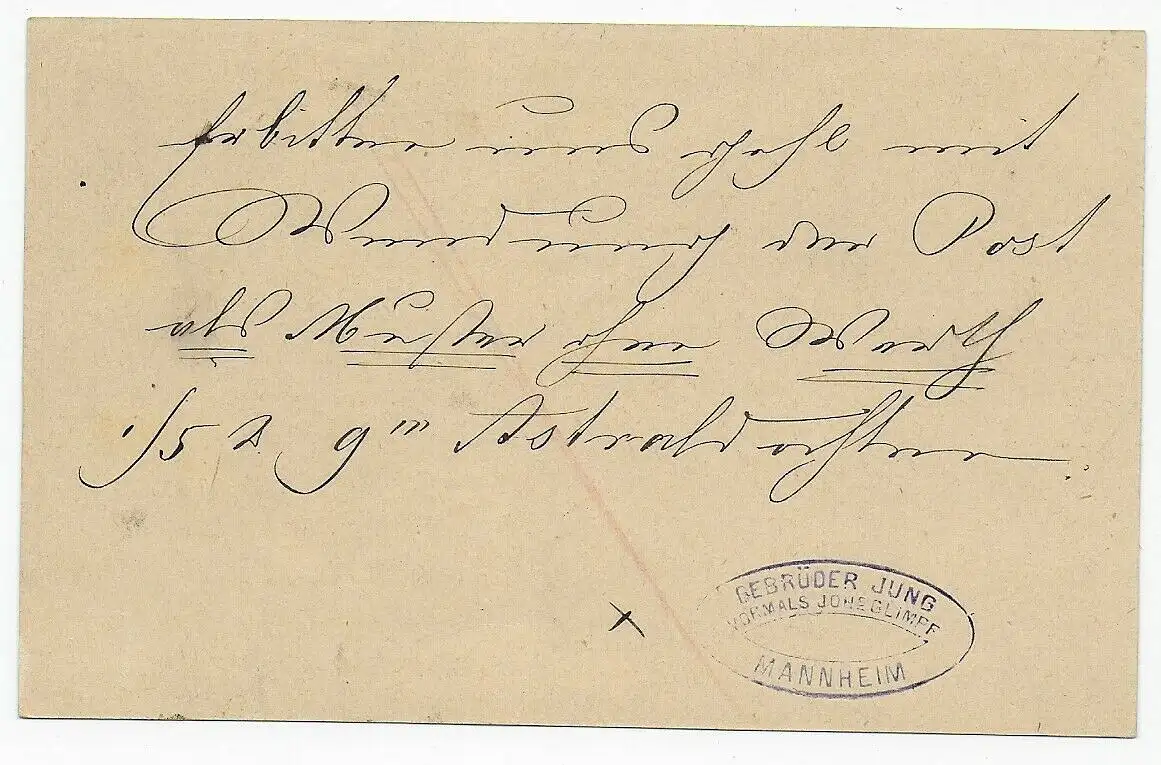 Erbitten uns gefl mit
Wendung der Post
als Muster ohne Werth
1/5 2 gm Astraldochten
GEBRÜDER JUNG
VORMALS JOHS GLIMPF
MANNHEIM